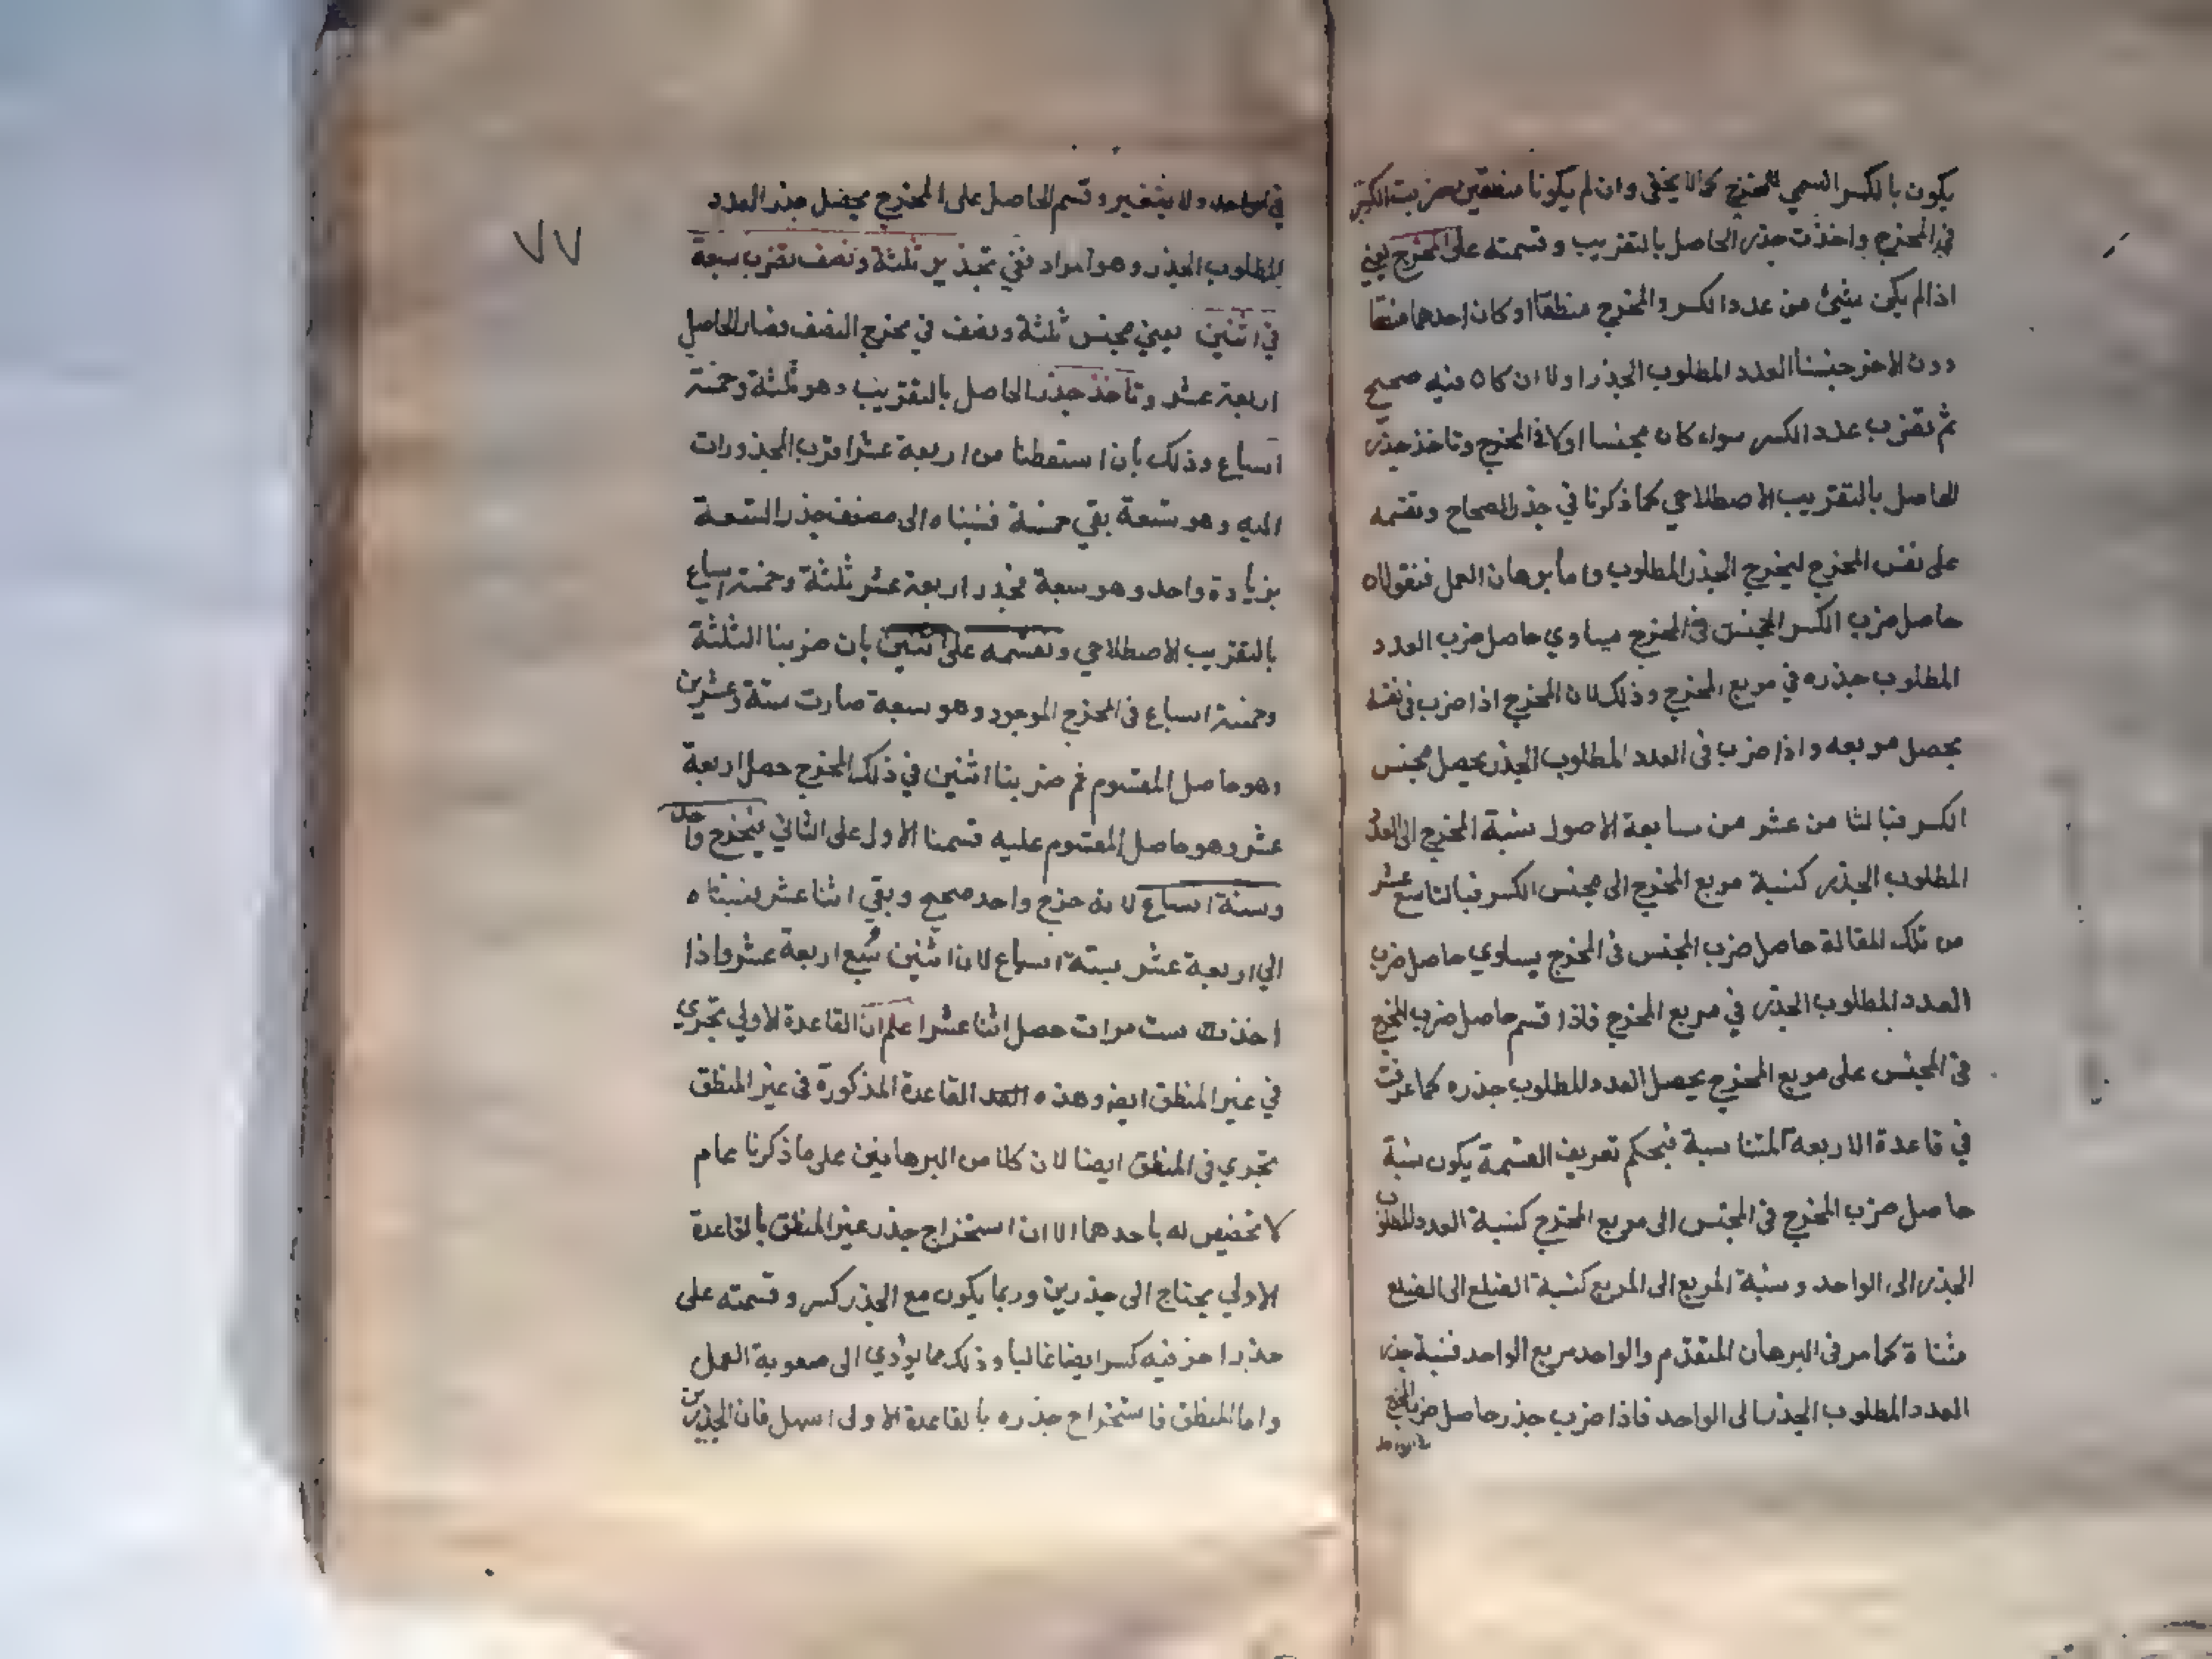 يكون بالكسر السمي للمخرج كما لا يخفى وان لم يكونا منطقين ضربت الكسر
في المخرج واخذت جذر الحاصل بالتقريب وقسمته على المخرج يعني
اذا لم يكن شيئ من عدد الكسر والمخرج منطقا او كان احدهما منطقا
دون الاخر جنسنا العدد المطلوب الجذر اولا ان كان فيه صحيح
ثم تضرب عدد الكسر سواء كان مجنسا اولا في المخرج وتاخذ جذر
الحاصل بالتقريب الاصطلاحي كما ذكرنا في جذر الصحاح وتقسمه
على نفس المخرج ليخرج الجذر المطلوب واما برهان العمل فنقول ان
حاصل ضرب الكسر المجنس في المخرج يساوي حاصل ضرب العدد
المطلوب جذره في مربع المخرج وذلك لان المخرج اذا ضرب في نفسه
يحصل مربعه واذا ضرب في العدد المطلوب الجذر يحصل مجنس
الكسر فبالثامن عشر من سابعة الاصول نسبة المخرج الى العدد
المطلوب الجذر كنسبة مربع المخرج الى مجنس الكسر فبالتاسع عشر
من تلك المقالة حاصل ضرب المجنس في المخرج يساوي حاصل ضرب
العدد المطلوب الجذر في مربع المخرج فاذا قسم حاصل ضرب المخرج
في المجنس على مربع المخرج يحصل العدد المطلوب جذره كما عرفت
في قاعدة الاربعة المتناسبة فبحكم تعريف القسمة يكون نسبة
حاصل ضرب المخرج في المجنس الى مربع المخرج كنسبة العدد المطلوب
الجذر الى الواحد ونسبة المربع الى المربع كنسبة الضلع الى الضلع
مثناة كما مر في البرهان المتقدم والواحد مربع الواحد فنسبة جذر
العدد المطلوب الجذر الى الواحد فاذا ضرب جذر حاصل ضرب المخرج
في الواحد
٧٧
في الواحد ولا يتغير وقسم الحاصل على المخرج يحصل جذر العدد
المطلوب الجذر وهو المراد ففي تجذير ثلثة ونصف تضرب سبعة
في اثنين يعني مجنس ثلثة ونصف في مخرج النصف فصار الحاصل
اربعة عشر وتاخذ جذر الحاصل بالتقريب وهو ثلثة وخمسة
اسباع وذلك بأن اسقطنا من اربعة عشر اقرب المجذورات
اليه وهو تسعة بقي خمسة فنسبناه الى مضعف جذر التسعة
بزيادة واحد وهو سبعة فجذر اربعة عشر ثلثة وخمسة اسباع
بالتقريب الاصطلاحي وتقسمه على اثنين بان ضربنا الثلثة
وخمسة اسباع في المخرج الموجود وهو سبعة صارت ستة وعشرين
وهو حاصل المقسوم ثم ضربنا اثنين في ذلك المخرج حصل اربعة
عشر وهو حاصل المقسوم عليه قسمنا الاول على الثاني ليخرج واحد
وستة اسباع لانه خرج واحد صحيح وبقي اثنا عشر نسبناه
الى اربعة عشر بستة اسباع لان اثنين سُبع اربعة عشر واذا
اخذت ست مرات حصل اثنا عشر اعلم ان القاعدة الاولى تجري
في غير المنطق ايضا وهذه القاعدة المذكورة في غير المنطق
تجري في المنطق ايضا لان كلا من البرهانين على ما ذكرنا عام
لا تخصيص له باحدهما الا ان استخراج جذر غير المنطق بالقاعدة
الاولى يحتاج الى جذرين وربما يكون مع الجذر كسر وقسمته على
جذر اخر فيه كسر ايضا غالبا وذلك مما يؤدي الى صعوبة العمل
واما المنطق فاستخراج جذره بالقاعدة الاولى اسهل فان الجذرين